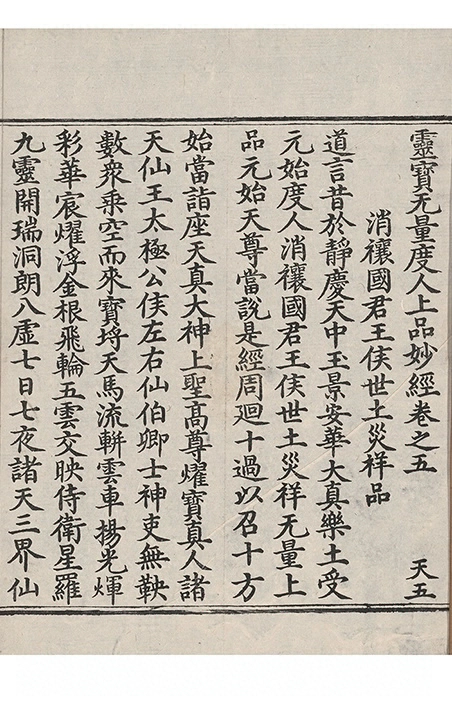 靈寶无量度人上品妙經卷之五 天五
消禳國君王侯世土災祥品
道言昔於靜慶天中玉景安華大真樂土受
元始度人消禳國君王侯世土災祥无量上
品元始天尊當說是經周迴十過以召十方
始當詣座天真大神上聖高尊耀寶真人諸
天仙王太極公侯左右仙伯卿士神吏無鞅
數衆乘空而來寶埓天馬流軿雲車揚光煇
彩華宸耀浮金根飛輪五雲交映侍衛星羅
九靈開瑞洞朗八虛七日七夜諸天三界仙